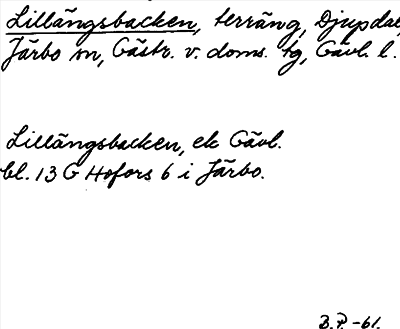 Lillängsbacken, terräng, Djupdal,
Järbo sn, Gästr. v. doms. tg, Gävl. l.
Lillängsbacken, ek Gävl.
bl. 13 G Hofors 6 i Järbo.
B.P. -61.